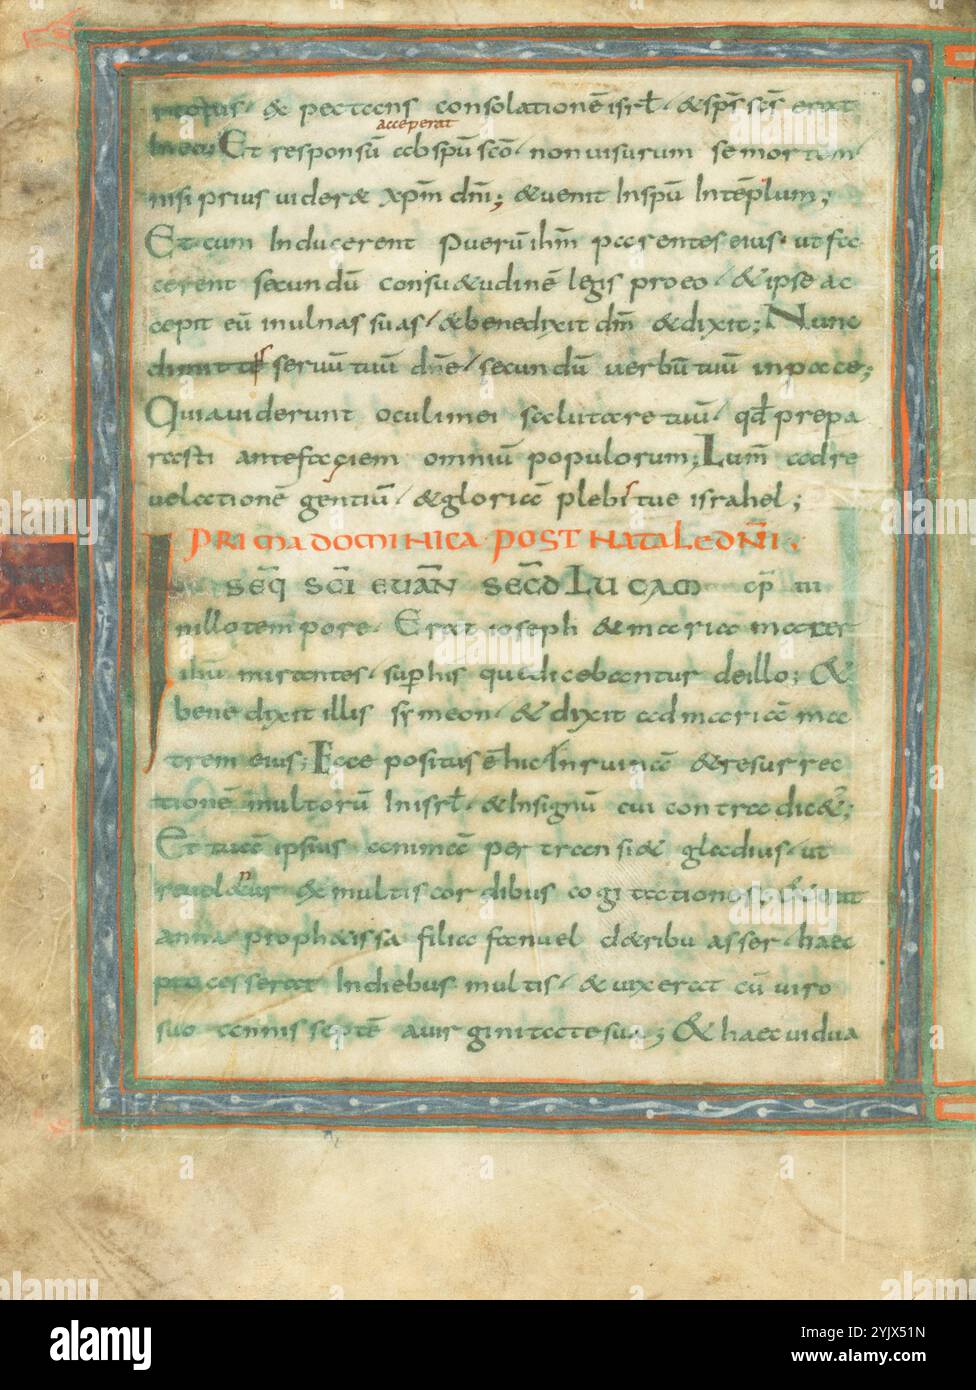 & expectans consolationē isrł. & sp̄s sc̄s erat
acceperat
In eo; Et responsū ab sp̄u sc̄o. non uisurum se mortem
nisi prius uider& xp̄m dn̄i; & uenit In sp̄u In tēplum;
Et cum Inducerent Puerū ih̄m parentes eius. ut fa
cerent secundū consu&udinē legis pro eo. & ipse ac
cepit eū in ulnas suas. & benedixit dm̄ & dixit; Nunc
dimittis seruū tuū dn̄e. secundū uerbū tuū in pace;
Quia uiderunt oculi mei salutare tuū. qd̄ prepa
rasti ante faciem omniū populorum; Lum̄ ad re
uelationē gentiū. & gloriā plebis tue israhel;
PRIMA DOMINICA POST NATALE DN̄I.
SEQ̄ SC̄I EUAN̄ SEC̄D LUCAM cp̄ iii
In illo tempore. Erat ioseph & maria mater
ih̄u mirantes. sup his que dicebantur de illo; &
benedixit illis symeon. & dixit ad mariā ma
trem eius; Ecce positus ē hic In ruinā & resurrec
tionē multorū In isrł. & In signū cui contradic&;
Et tuā ipsius animā pertransi& gladius. ut
reuelentur ex multis cordibus cogitationes; & erat
anna proph&issa filia fanuel de tribu asser. haec
processerat In diebus multis. & uixerat cū uiro
suo annis septē a uirginitate sua; & haec uidua
alamy
Image ID: 2YJX51N
www.alamy.com